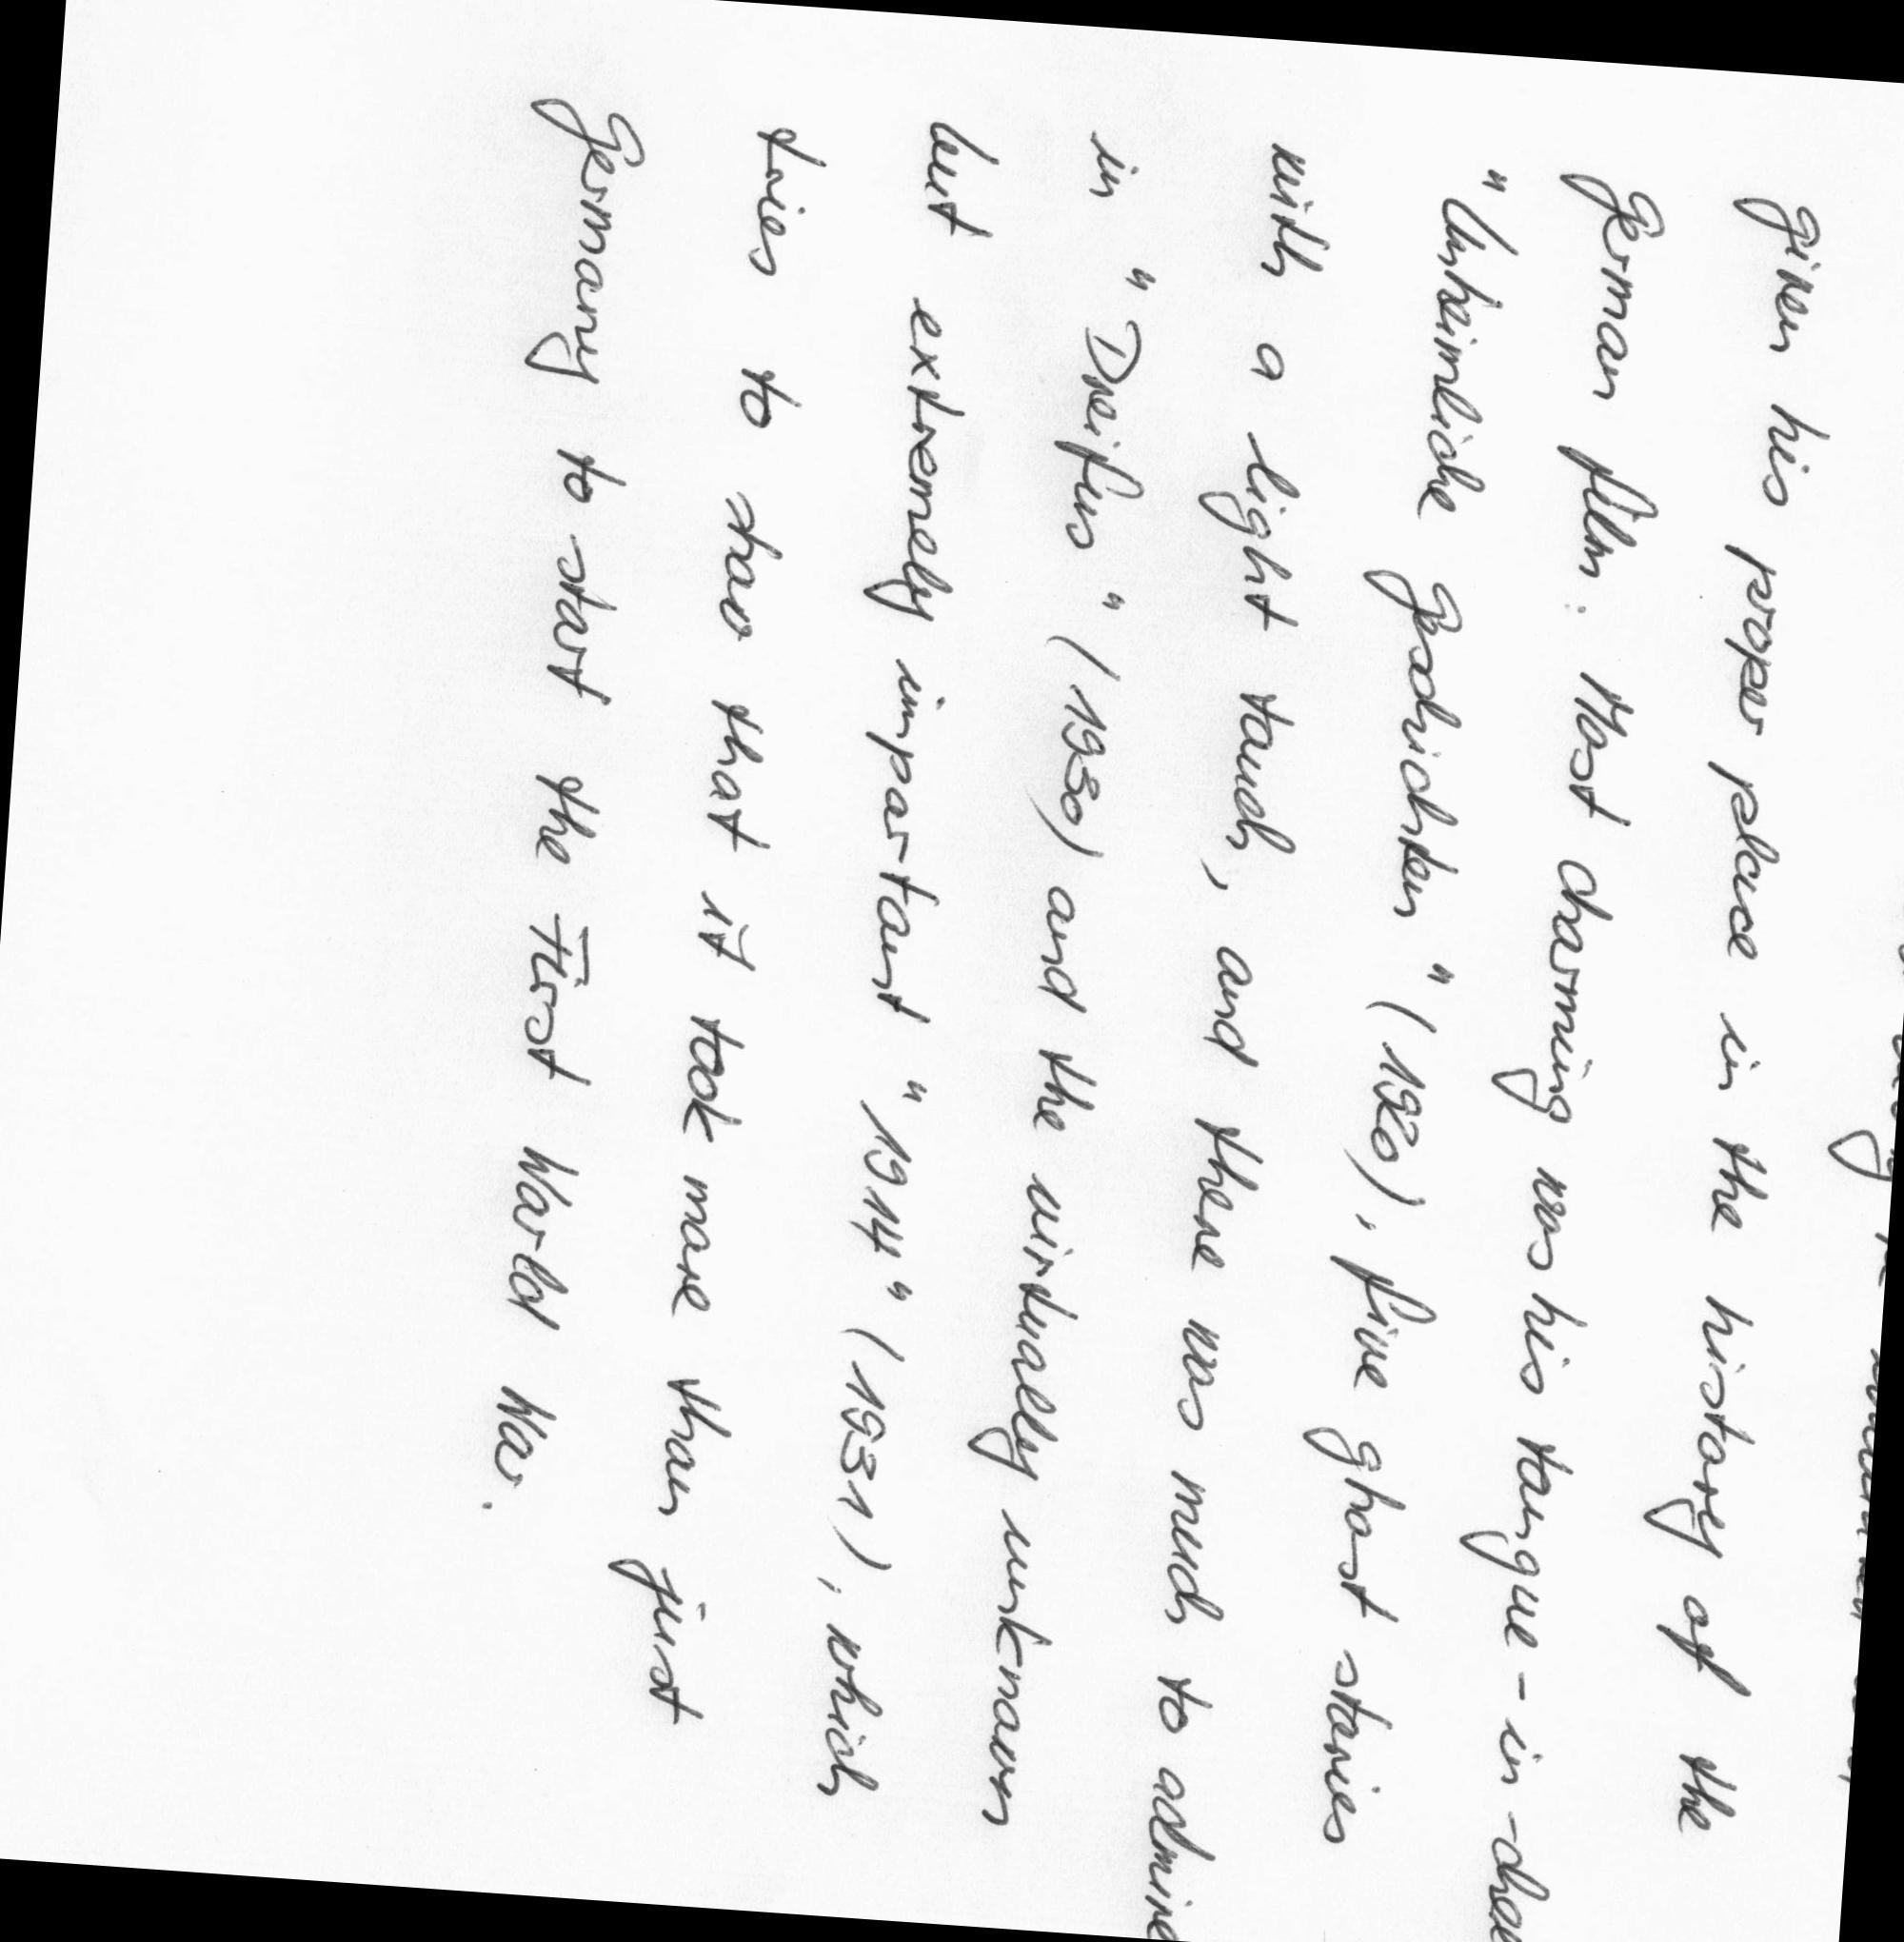 given his proper place in the history of the
German film. Most charming was his tongue-in-chee
"Unheimliche Geschichten" (1920), five ghost stories
with a light touch, and there was much to admire
in "Dreifus" (1930) and the virtually unknown
but extremely important "1914" (1931), which
tries to show that it took more than just
Germany to start the First World War.